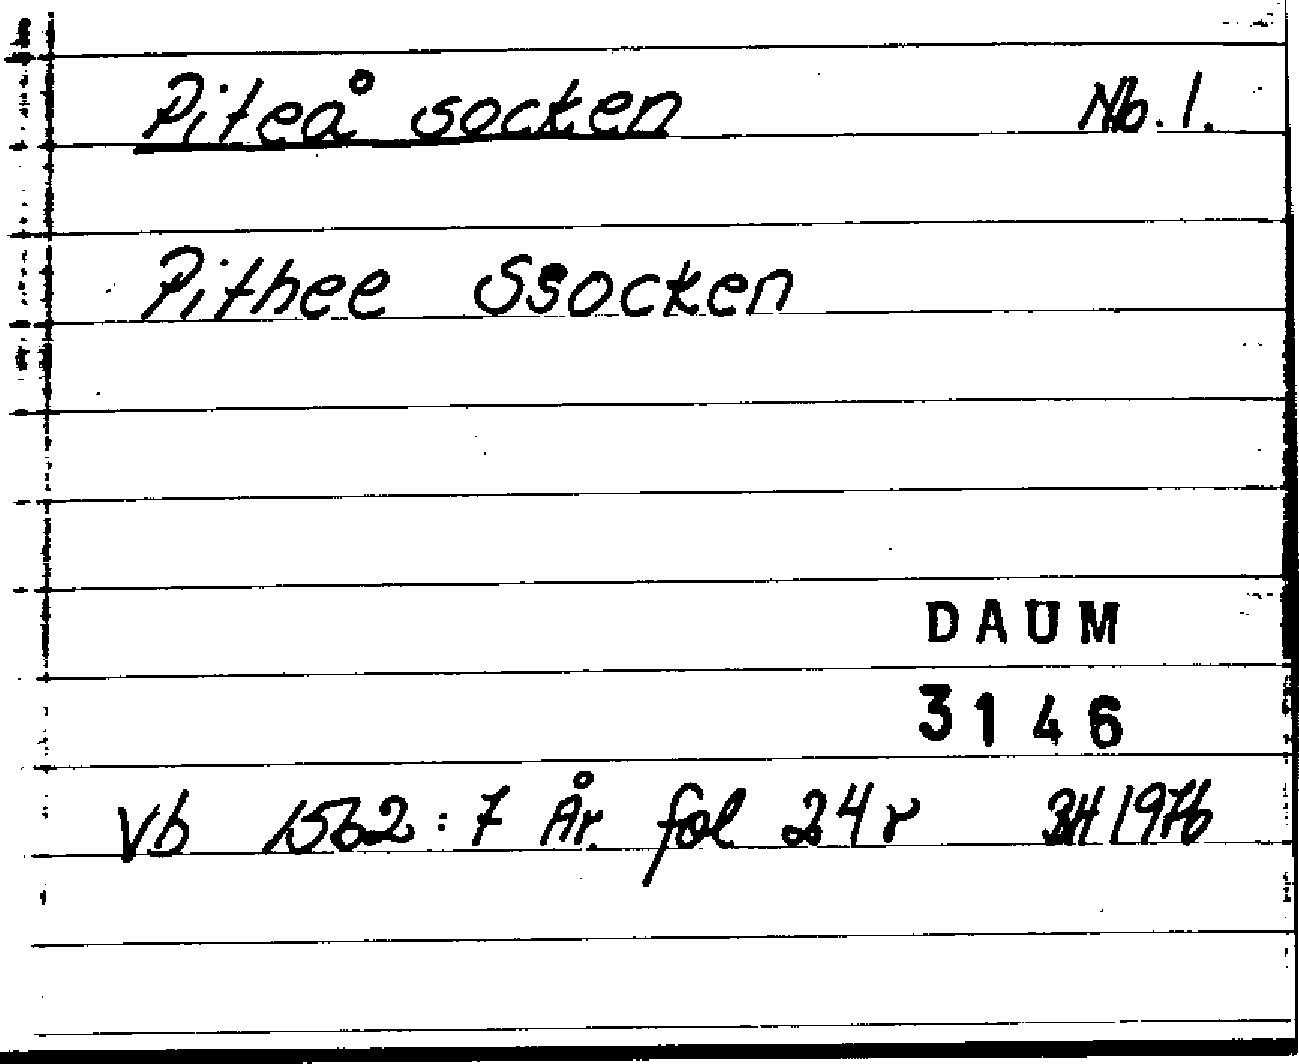 Piteå socken Nb. 1.
Pithee Ssocken
DAUM
3146
Vb 1562:7 År. fol 24 r BH 1976